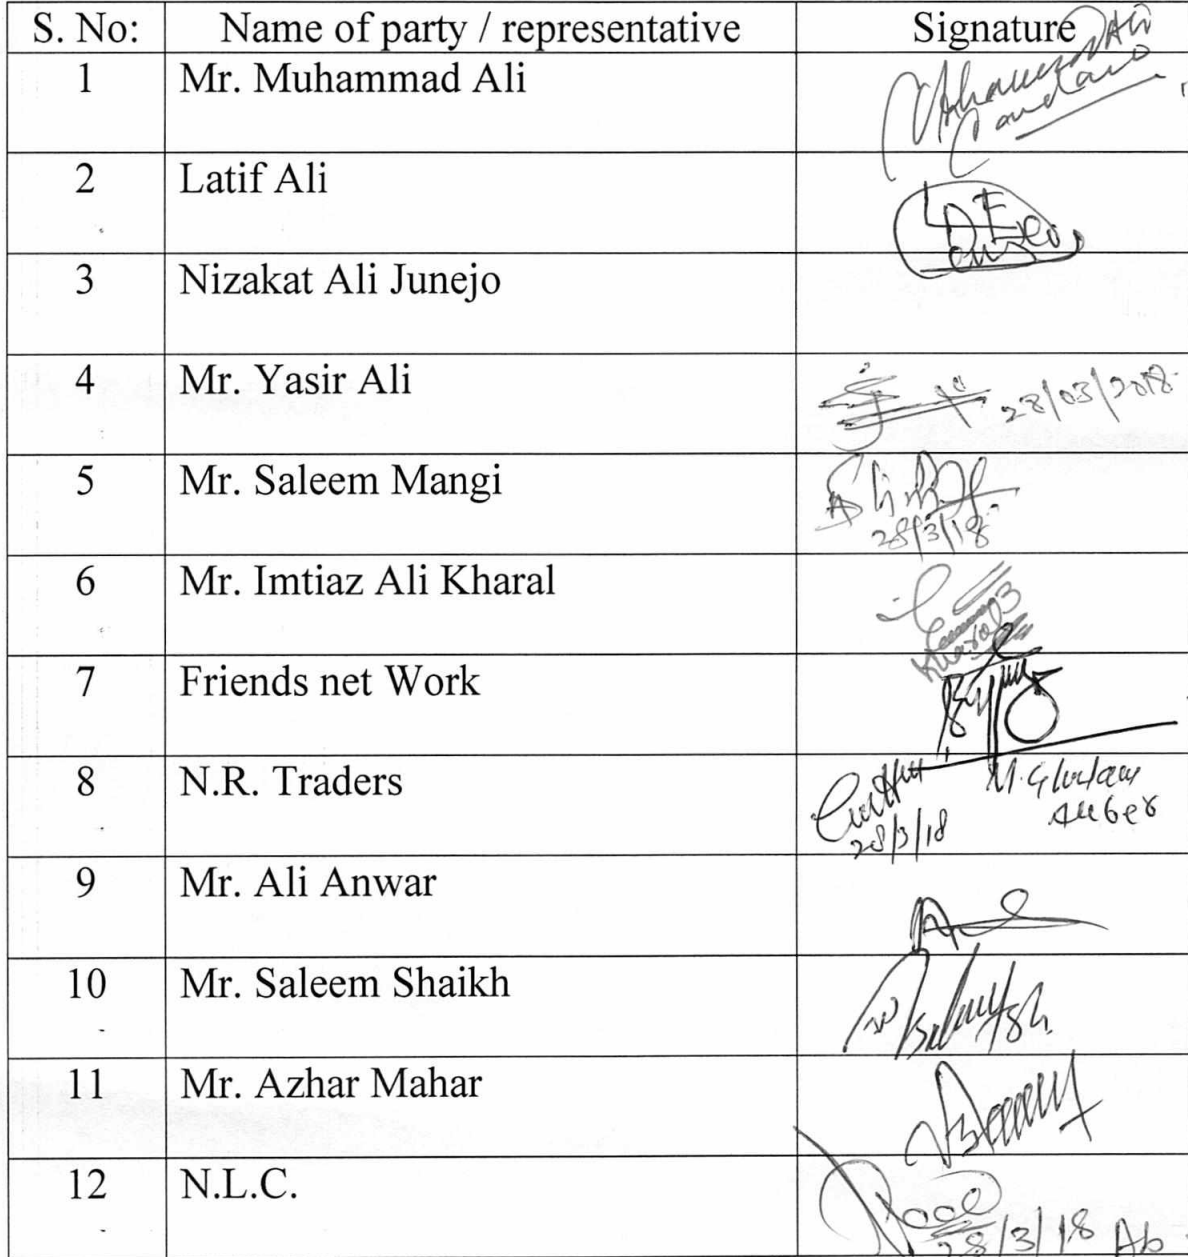 S. No: Name of party / representative Signature
1 Mr. Muhammad Ali
2 Latif Ali
3 Nizakat Ali Junejo
4 Mr. Yasir Ali 28/03/2018
5 Mr. Saleem Mangi
28/3/18
6 Mr. Imtiaz Ali Kharal
7 Friends net Work
8 N.R. Traders
28/3/18
9 Mr. Ali Anwar
10 Mr. Saleem Shaikh
11 Mr. Azhar Mahar
12 N.L.C.
28/3/18 Ab